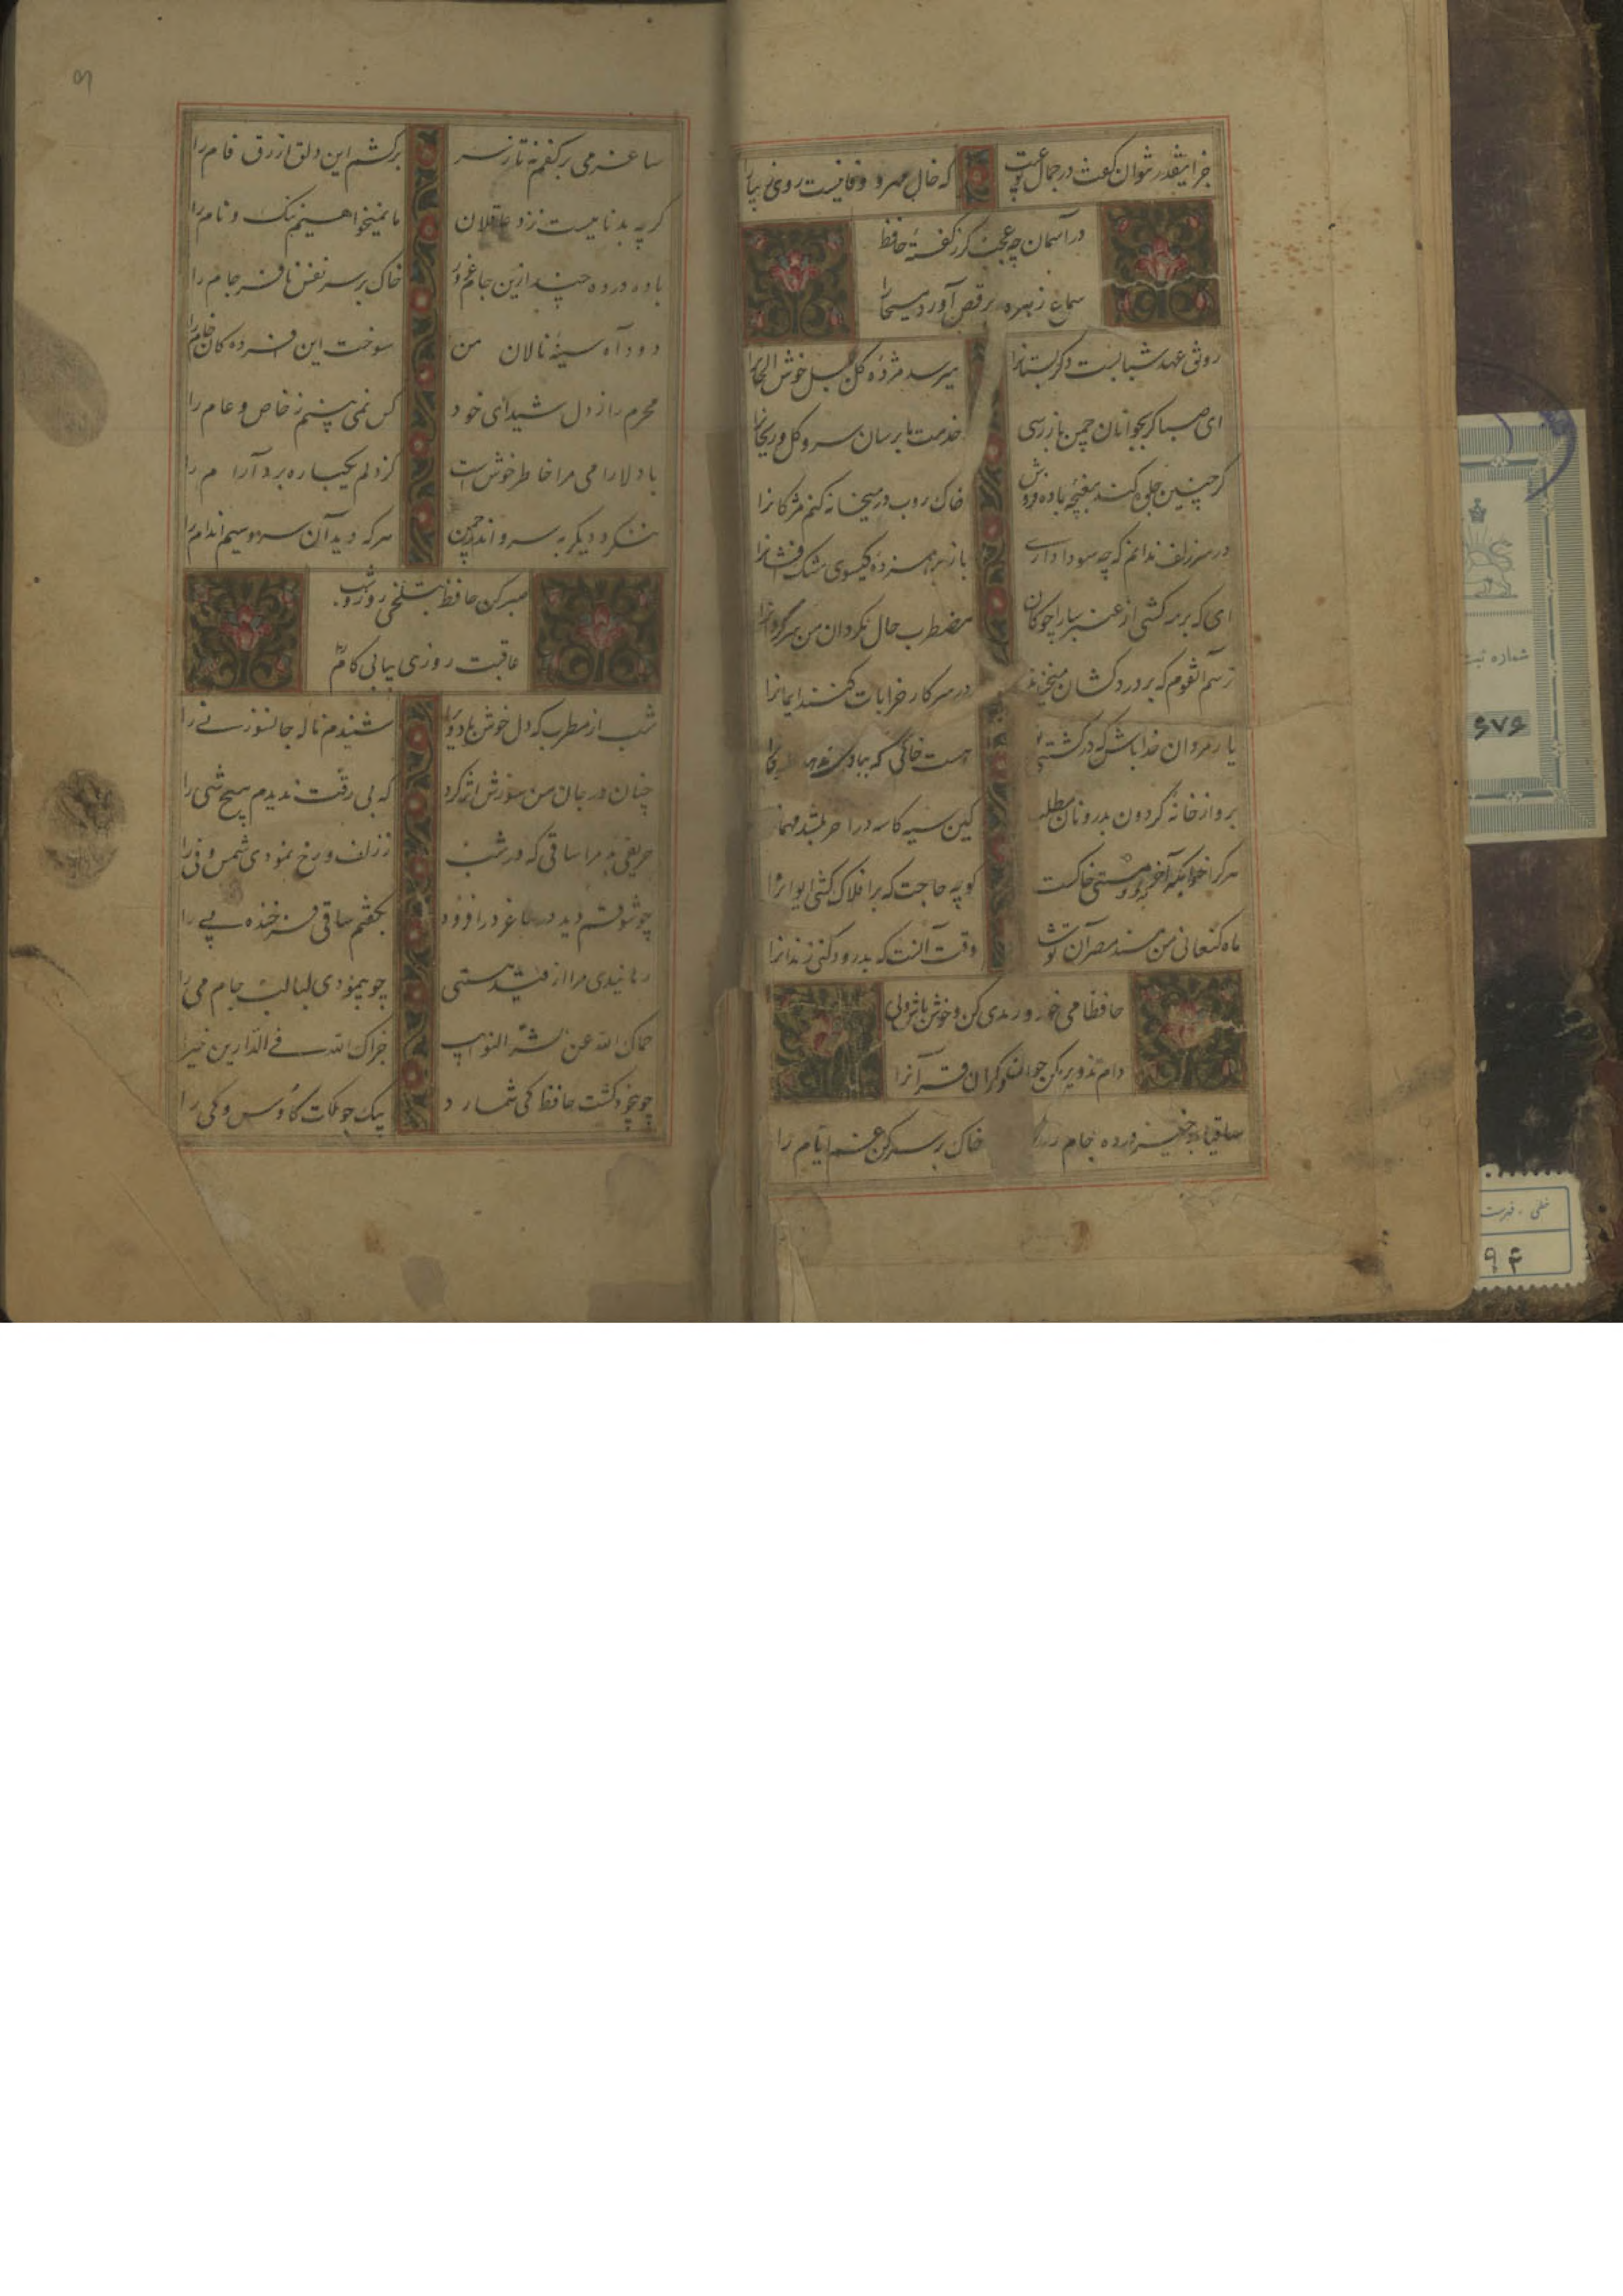 جز اینقدر نتوان گفت در جمال تو عیب که خال مهر و وفا نیست روی زیبا را
در آسمان چه عجب گر ز گفتهٔ حافظ
سماع زهره برقص آورد مسیحا را
رونق عهد شبابست دگر بستانرا میرسد مژدهٔ گل بلبل خوش الحانرا
ای صبا گر بجوانان چمن باز رسی خدمت ما برسان سرو و گل و ریحانرا
گر چنین جلوه کند مغبچهٔ باده فروش خاک روب در میخانه کنم مژگانرا
در سر زلف ندانم که چه سودا داری باز بر هم زدهٔ گیسوی مشک افشانرا
ای که بر مه کشی از عنبر سارا چوکان مضطرب حال مگردان من سرگردانرا
ترسم آنقوم که بر دردکشان میخندند در سر کار خرابات کنند ایمانرا
یار مردان خدا باش که در کشتی نوح هست خاکی که بآبی نخرد طوفانرا
برو از خانه گردون بدر و نان مطلب کین سیه کاسه در آخر بکشد مهمانرا
هر کرا خوابگه آخر بدو مشتی خاکست گو چه حاجت که بر افلاک کشی ایوانرا
ماه کنعانی من مسند مصر آن تو شد وقت آنست که بدرود کنی زندانرا
حافظا می خور و رندی کن و خوش باش ولی
دام تزویر مکن چون دگران قرآنرا
ساقیا برخیز و درده جام را خاک بر سر کن غم ایام را
ساغر می بر کفم نه تا ز سر برکشم این دلق ازرق فام را
گرچه بدنامیست نزد عاقلان ما نمیخواهیم ننگ و نام را
باده درده چند ازین جام غرور خاک بر سر نفس نافرجام را
دود آه سینهٔ نالان من سوخت این افسرده کان خام را
محرم راز دل شیدای خود کس نمی بینم ز خاص و عام را
با دلارامی مرا خاطر خوش است کز دلم یکباره برد آرام را
ننگرد دیگر به سرو اندر چمن هر که دید آن سرو سیم اندام را
صبر کن حافظ بتلخی روز و شب
عاقبت روزی بیابی کام را
شب از مطرب که دل خوش باد ویرا شنیدم ناله جانسوز نی را
چنان در جان من سوزش اثر کرد که بی رقت ندیدم هیچ شی را
حریفی بد مرا ساقی که در شب ز زلف و رخ نمودی شمس و فی را
چو شوقم دید در ساغر در افزود بگفتم ساقی فرخنده پی را
رهانیدی مرا از قید هستی چو پیمودی لبالب جام می را
حماک الله عن شر النوایب جزاک الله فی الدارین خیرا
چو بیخود گشت حافظ کی شمارد بیک جو ملکت کاوس و کی را
شماره ثبت
۶۷۶
خطی . فهرست
۹۴